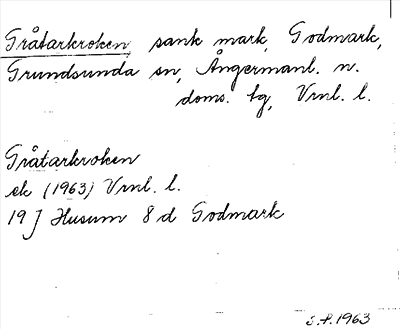 Gråtarkroken, sank mark, Godmark,
Grundsunda sn, Ångermanl. n.
doms. tg, Vrnl. l.
Gråtarkroken
ek (1963) Vrnl. l.
19 J Husum 8 d Godmark
S.F. 1963